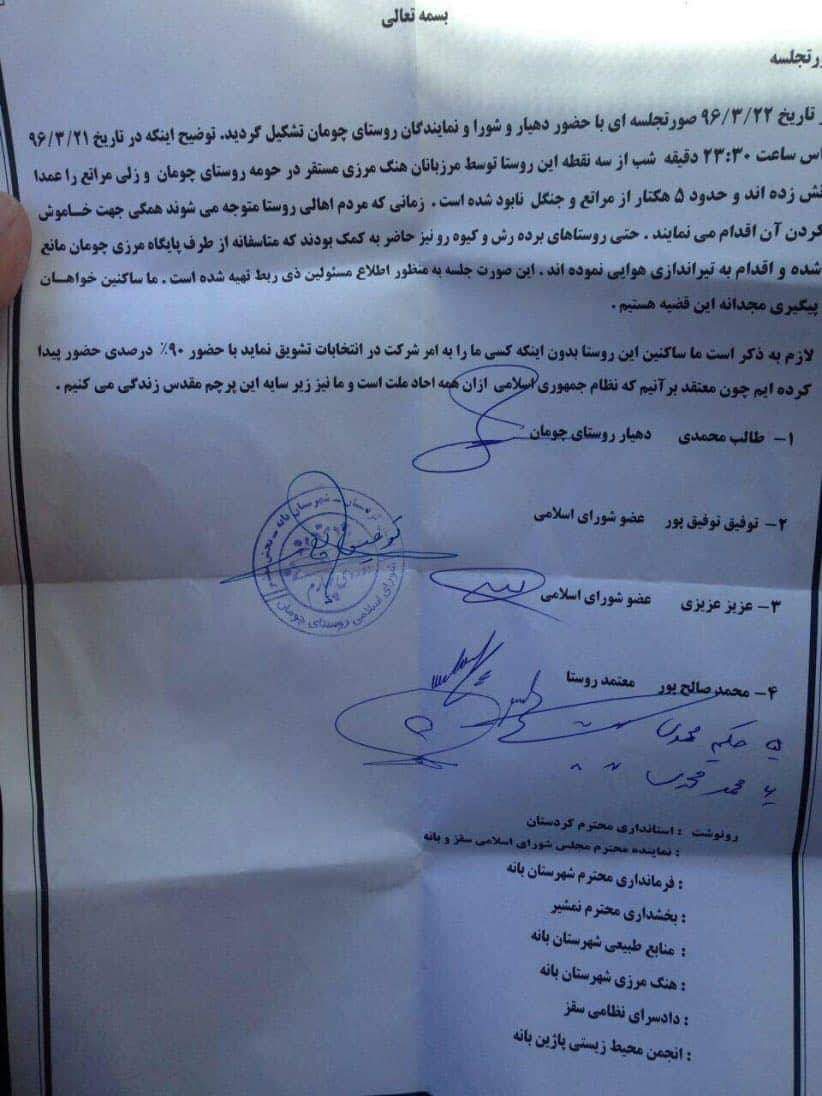 بسمه تعالی
رتجلسه
ر تاریخ ۹۶/۳/۲۲ صورتجلسه ای با حضور دهیار و شورا و نمایندگان روستای چومان تشکیل گردید. توضیح اینکه در تاریخ ۹۶/۳/۲۱
اس ساعت ۲۳:۳۰ دقیقه شب از سه نقطه این روستا توسط مرزبانان هنگ مرزی مستقر در حومه روستای چومان و زلی مراتع را عمدا
تش زده اند و حدود ۵ هکتار از مراتع و جنگل نابود شده است . زمانی که مردم اهالی روستا متوجه می شوند همگی جهت خـاموش
کردن آن اقدام می نمایند . حتی روستاهای برده رش و کیوه رو نیز حاضر به کمک بودند که متاسفانه از طرف پایگاه مرزی چومان مانع
شده و اقدام به تیراندازی هوایی نموده اند . این صورت جلسه به منظور اطلاع مسئولین ذی ربط تهیه شده است . ما ساکنین خواهـان
پیگیری مجدانه این قضیه هستیم .
لازم به ذکر است ما ساکنین این روستا بدون اینکه کسی ما را به امر شرکت در انتخابات تشویق نماید با حضور ۹۰٪ درصدی حضور پیدا
کرده ایم چون معتقد برآنیم که نظام جمهوری اسلامی ازان همه احاد ملت است و ما نیز زیر سایه این پرچم مقدس زندگی می کنیم .
۱- طالب محمدی دهیار روستای چومان
۲- توفیق توفیق پور عضو شورای اسلامی
۳- عزیز عزیزی عضو شورای اسلامی
شورای اسلامی روستای چومان
۴- محمد صالح پور معتمد روستا
۵ حکیم محمدی " "
۶ محمد محمدی " "
رونوشت : استانداری محترم کردستان
: نماینده محترم مجلس شورای اسلامی سقز و بانه
: فرمانداری محترم شهرستان بانه
: بخشداری محترم نمشیر
: منابع طبیعی شهرستان بانه
: هنگ مرزی شهرستان بانه
: دادسرای نظامی سقز
: انجمن محیط زیستی پاژین بانه